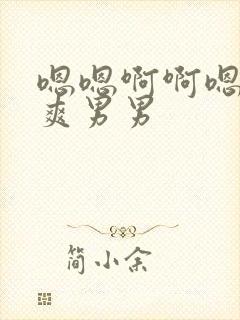 嗯嗯啊啊嗯
爽男男
简小余